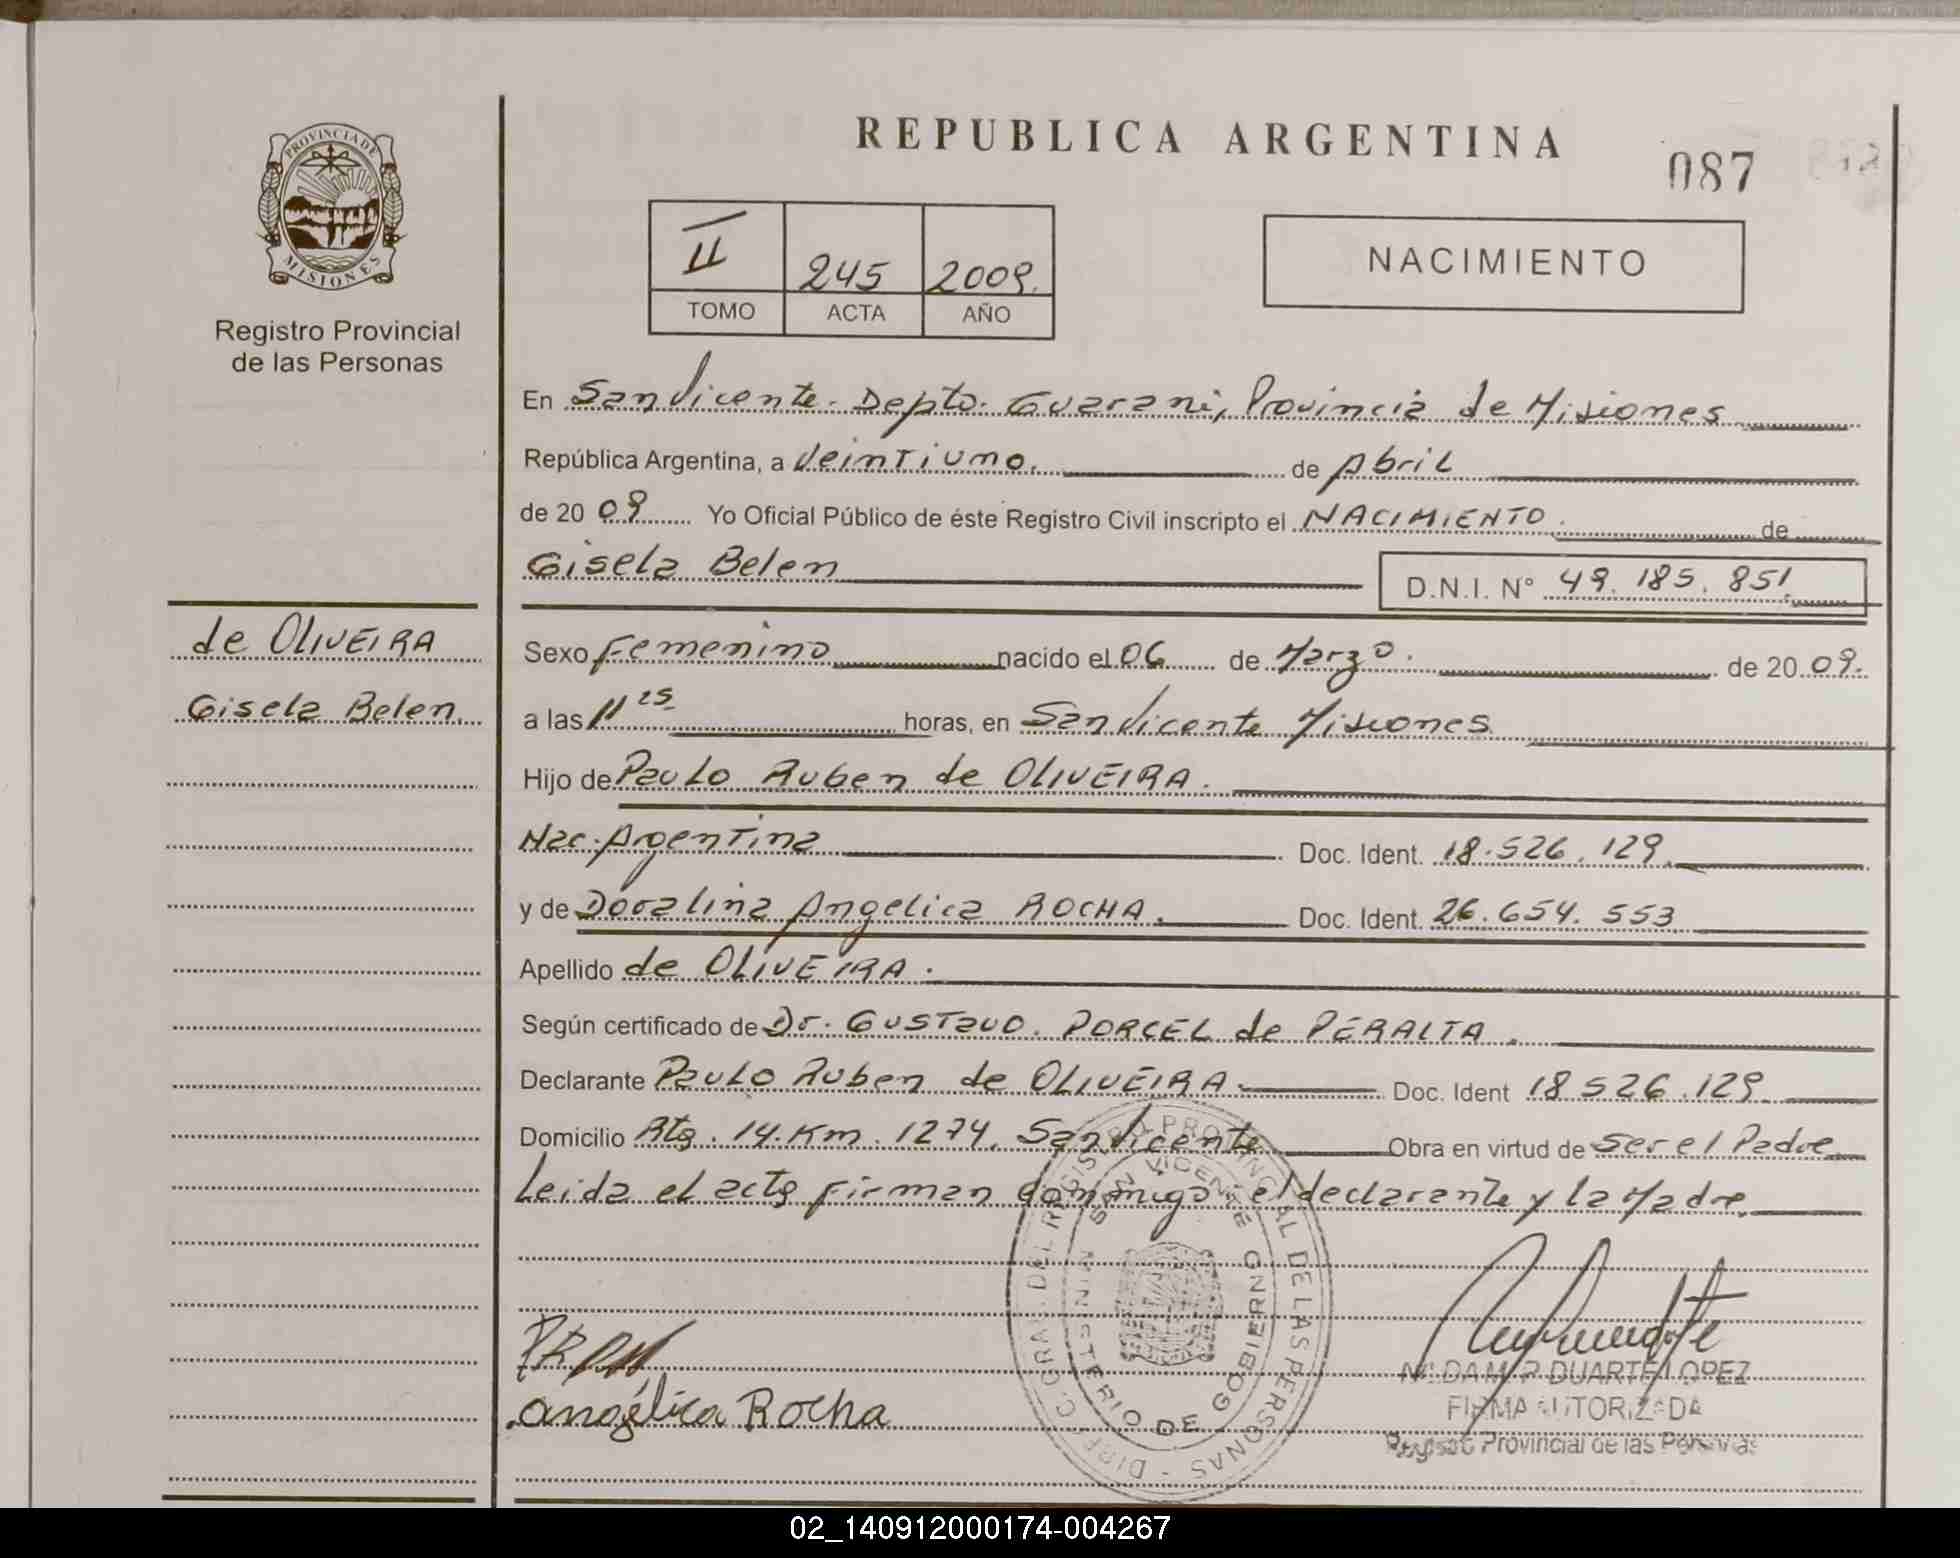 REPUBLICA ARGENTINA
087
PROVINCIA DE
MISIONES
Registro Provincial
de las Personas
II 245 2009.
TOMO ACTA AÑO
NACIMIENTO
En San Vicente. Depto. Guarani, Provincia de Misiones
República Argentina, a Veintiuno. de Abril
de 20 09 Yo Oficial Público de éste Registro Civil inscripto el NACIMIENTO. de
Gisela Belen D.N.I. N° 49.185.851.
de OLIVEIRA
Gisela Belen.
Sexo Femenino nacido el 06 de Marzo. de 20 09.
a las 11 25 horas, en San Vicente Misiones
Hijo de Paulo Ruben de OLIVEIRA.
Nac. Argentina Doc. Ident. 18.526.129.
y de Doralina Angelica ROCHA. Doc. Ident. 26.654.553
Apellido de OLIVEIRA.
Según certificado de Dr. GUSTAVO. PORCEL de PERALTA.
Declarante Paulo Ruben de OLIVEIRA. Doc. Ident 18526.129.
Domicilio Rta. 14. Km. 1274. San Vicente Obra en virtud de Ser el Padre
Leida el acta firman conmigo el declarante y la Madre.
DIREC GRAL DEL REGISTRO PROVINCIAL DE LAS PERSONAS -
SAN VICENTE
MINISTERIO DE GOBIERNO
Angélica Rocha
DUARTE LOPEZ
FIRMA AUTORIZADA
Registro Provincial de las Personas
02_140912000174-004267